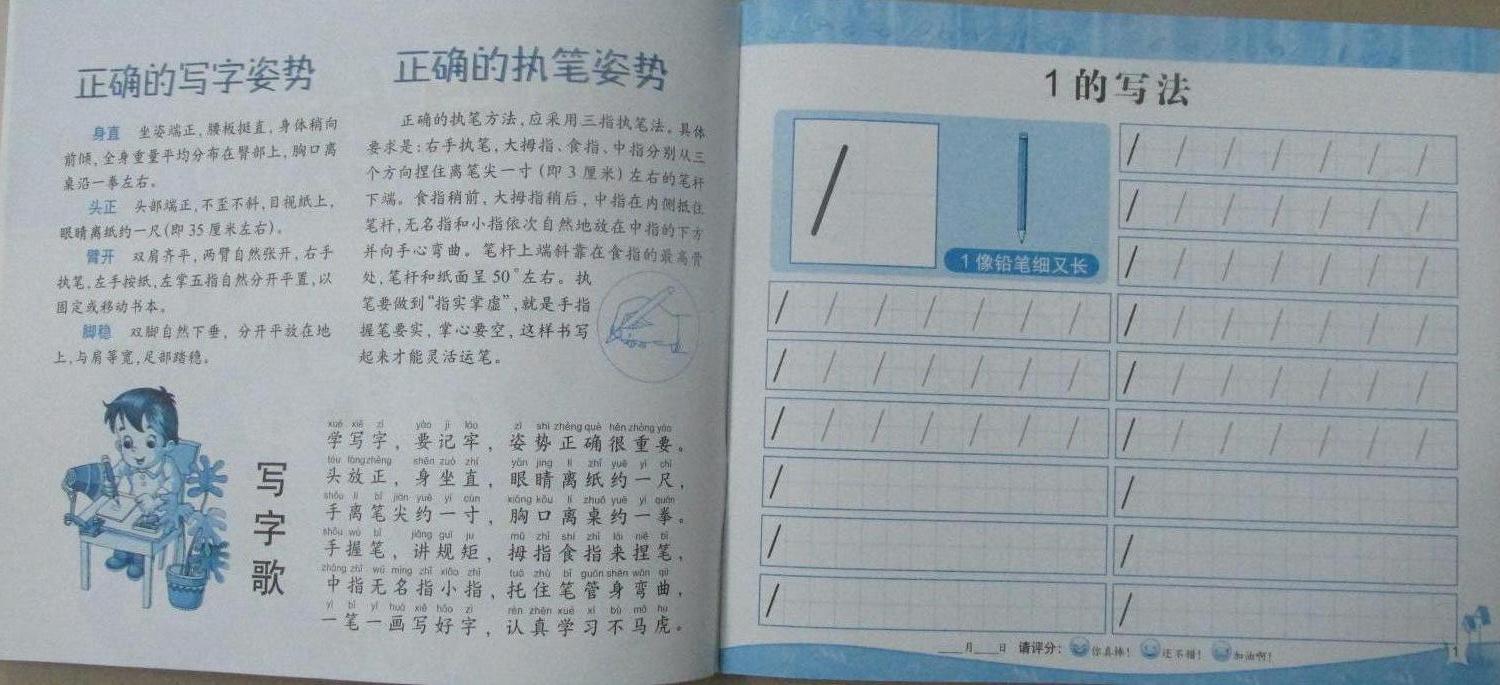 正确的写字姿势
身直 坐姿端正,腰板挺直,身体稍向
前倾,全身重量平均分布在臀部上,胸口离
桌沿一拳左右。
头正 头部端正,不歪不斜,目视纸上,
眼睛离纸约一尺(即35厘米左右)。
臂开 双肩齐平,两臂自然张开,右手
执笔,左手按纸,左掌五指自然分开平置,以
固定或移动书本。
脚稳 双脚自然下垂,分开平放在地
上,与肩等宽,足部踏稳。
正确的执笔姿势
正确的执笔方法,应采用三指执笔法。具体
要求是:右手执笔,大拇指、食指、中指分别从三
个方向捏住离笔尖一寸(即3厘米)左右的笔杆
下端。食指稍前,大拇指稍后,中指在内侧抵住
笔杆,无名指和小指依次自然地放在中指的下方
并向手心弯曲。笔杆上端斜靠在食指的最高骨
处,笔杆和纸面呈50°左右。执
笔要做到“指实掌虚”,就是手指
握笔要实,掌心要空,这样书写
起来才能灵活运笔。
写字歌
xué xiě zì yào jì láo zī shì zhèng què hěn zhòng yào
学写字,要记牢,姿势正确很重要。
tóu fàng zhèng shēn zuò zhí yǎn jing lí zhǐ yuē yì chǐ
头放正,身坐直,眼睛离纸约一尺,
shǒu lí bǐ jiān yuē yí cùn xiōng kǒu lí zhuō yuē yì quán
手离笔尖约一寸,胸口离桌约一拳。
shǒu wò bǐ jiǎng guī ju mǔ zhǐ shí zhǐ lái niē bǐ
手握笔,讲规矩,拇指食指来捏笔,
zhōng zhǐ wú míng zhǐ xiǎo zhǐ tuō zhù bǐ guǎn shēn wān qū
中指无名指小指,托住笔管身弯曲,
yì bǐ yí huà xiě hǎo zì rèn zhēn xué xí bù mǎ hu
一笔一画写好字,认真学习不马虎。
1的写法
1
1像铅笔细又长
1 1 1 1 1 1 1
1 1 1 1 1 1 1
1 1 1 1 1 1 1
1 1 1 1 1 1 1
1 1 1 1 1 1 1
1 1 1 1 1 1 1
1
1
1
1 1 1 1 1 1 1
1 1 1 1 1 1 1
1 1 1 1 1 1 1
1
1
1
____月____日 请评分: 你真棒! 还不错! 加油啊!
1